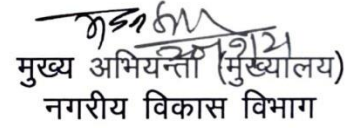 मुख्य अभियन्ता (मुख्यालय)
नगरीय विकास विभाग